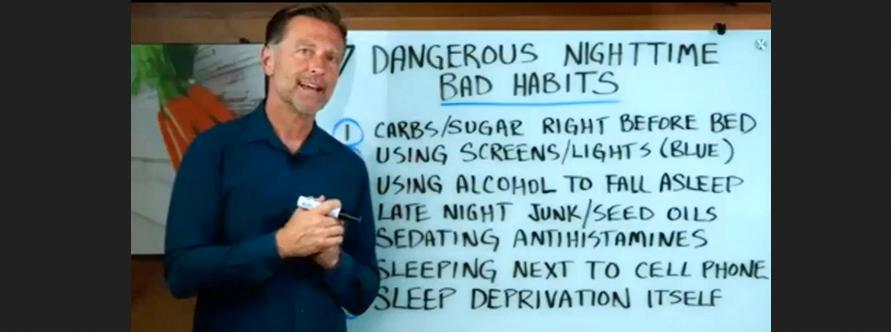 7 DANGEROUS NIGHTTIME
BAD HABITS
1 CARBS/SUGAR RIGHT BEFORE BED
USING SCREENS/LIGHTS (BLUE)
USING ALCOHOL TO FALL ASLEEP
LATE NIGHT JUNK/SEED OILS
SEDATING ANTIHISTAMINES
SLEEPING NEXT TO CELL PHONE
SLEEP DEPRIVATION ITSELF